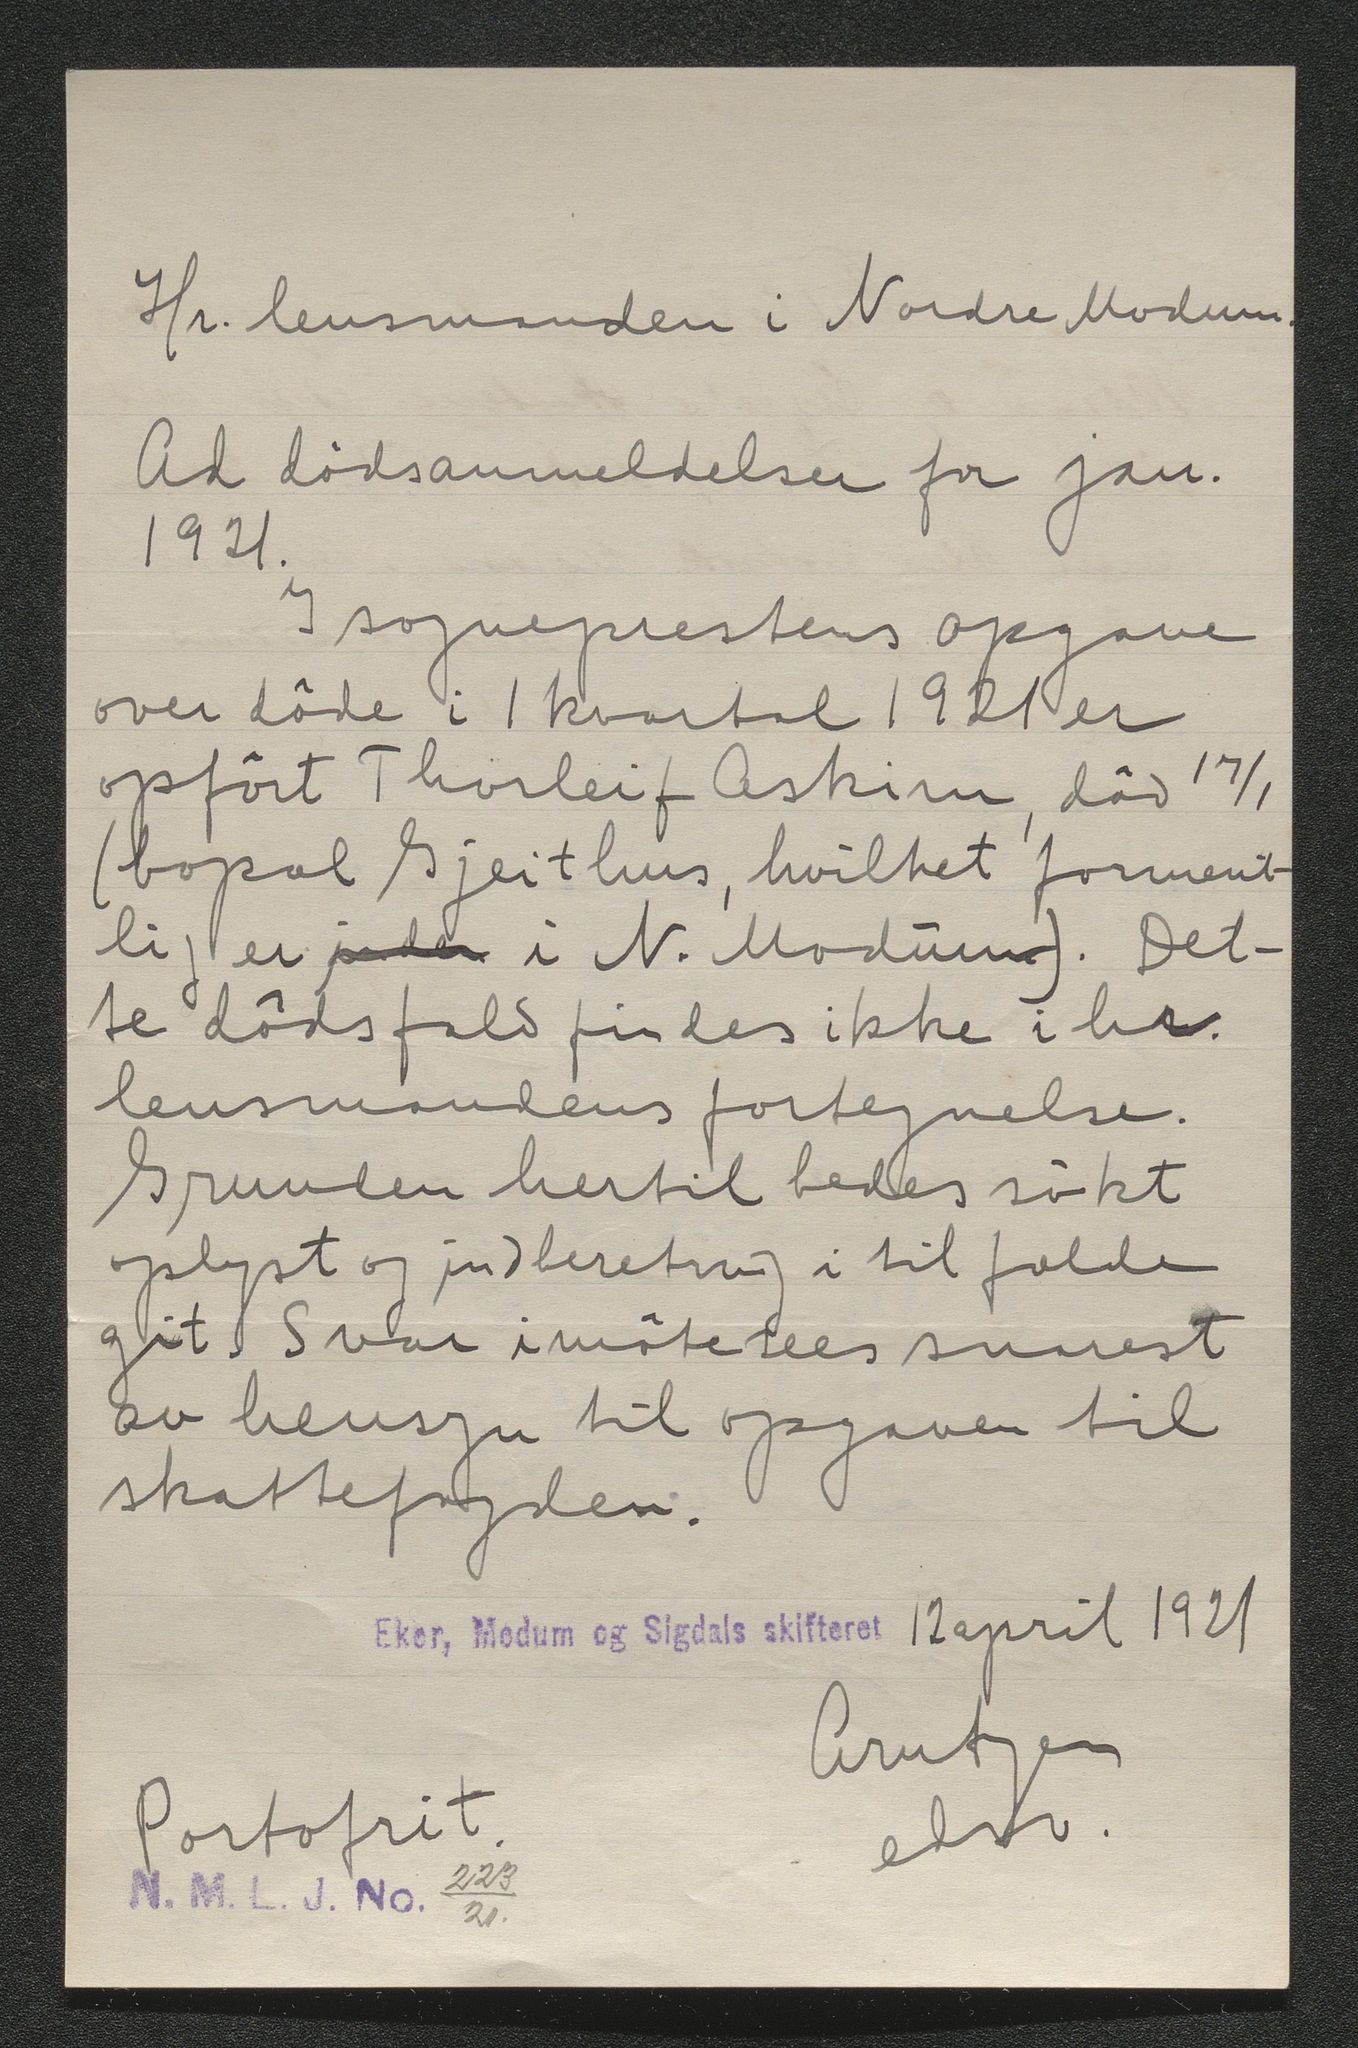 Hr. lensmanden i Nordre Modum.
Ad dödsanmeldelser for jan.
1921.
I sogneprestens opgave
over döde i 1 kvartal 1921 er
opfört Thorleif Askim, död 17/1
(bopæl Gjeithus, hvilket forment-
lig er i N. Modum). Det-
te dödsfald findes ikke i hr.
lensmandens fortegnelse.
Grunden hertil bedes sökt
oplyst og indberetning i tilfælde
git. Svar imötesees snarest
av hensyn til opgaven til
skattefogden.
Eker, Modum og Sigdals skifteret 12 april 1921
Arntzen
edsv.
Portofrit.
N. M. L. J. No. 223/21.